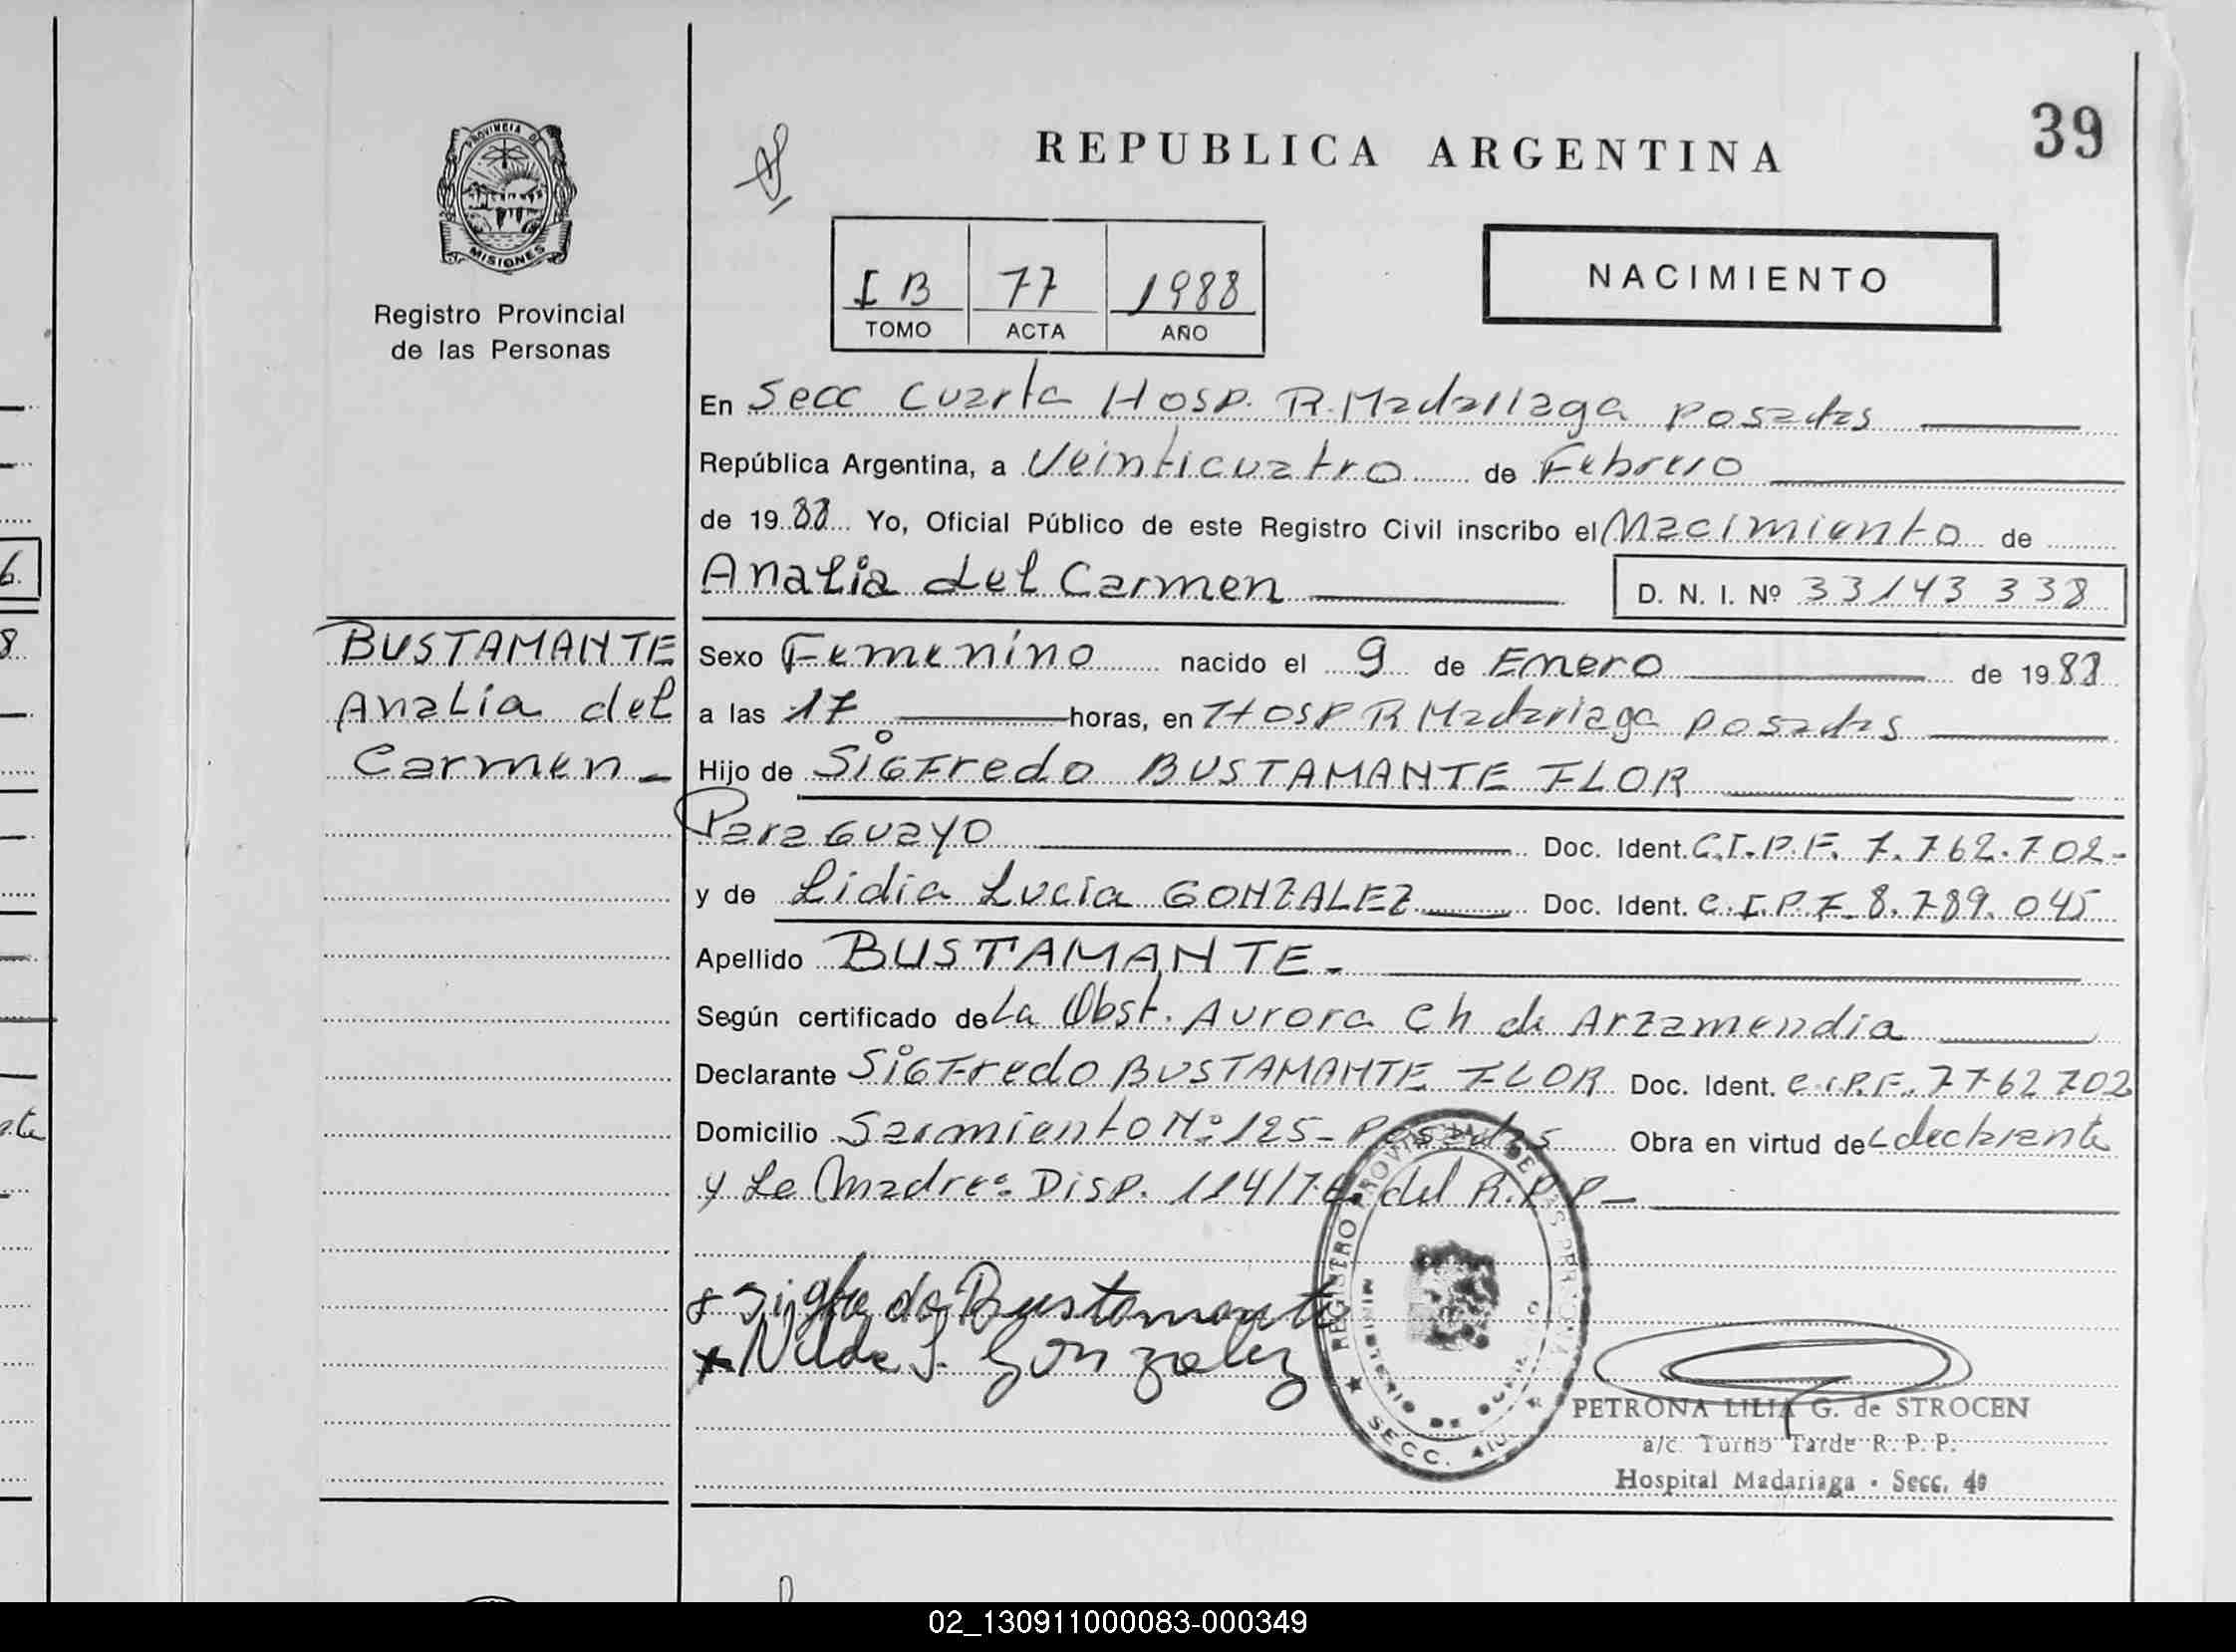 PROVINCIA DE
MISIONES
Registro Provincial
de las Personas
REPUBLICA ARGENTINA
39
I B 77 1988
TOMO ACTA AÑO
NACIMIENTO
En Secc Cuarta Hosp. R. Madariaga Posadas
República Argentina, a Veinticuatro de Febrero
de 1988 Yo, Oficial Público de este Registro Civil inscribo el Nacimiento de
Analia del Carmen D. N. I. Nº 33143338
BUSTAMANTE
Analia del
Carmen
Sexo Femenino nacido el 9 de Enero de 1988
a las 17 horas, en Hosp R Madariaga Posadas
Hijo de SiGFredo BUSTAMANTE FLOR
ParaGuayo Doc. Ident. C.I.P.F. 7.762.702-
y de Lidia Lucia GONZALEZ Doc. Ident. C.I.P.F. 8.789.045
Apellido BUSTAMANTE-
Según certificado de La Obst. Aurora Ch de Arzamendia
Declarante SiGFredo BUSTAMANTE FLOR Doc. Ident. C.I.P.F. 7762702
Domicilio Sarmiento Nº 125- Posadas Obra en virtud de declarante
y La Madre: Disp. 114/76 del R.P.P-
Sigfredo Bustamante
Gonzalez
REGISTRO PROVINCIAL DE LAS PERSONAS
MINISTERIO DE GOBIERNO
SECC. 4
PETRONA LILIA G. de STROCEN
a/c. Turno Tarde R. P. P.
Hospital Madariaga - Secc. 4a
02_130911000083-000349